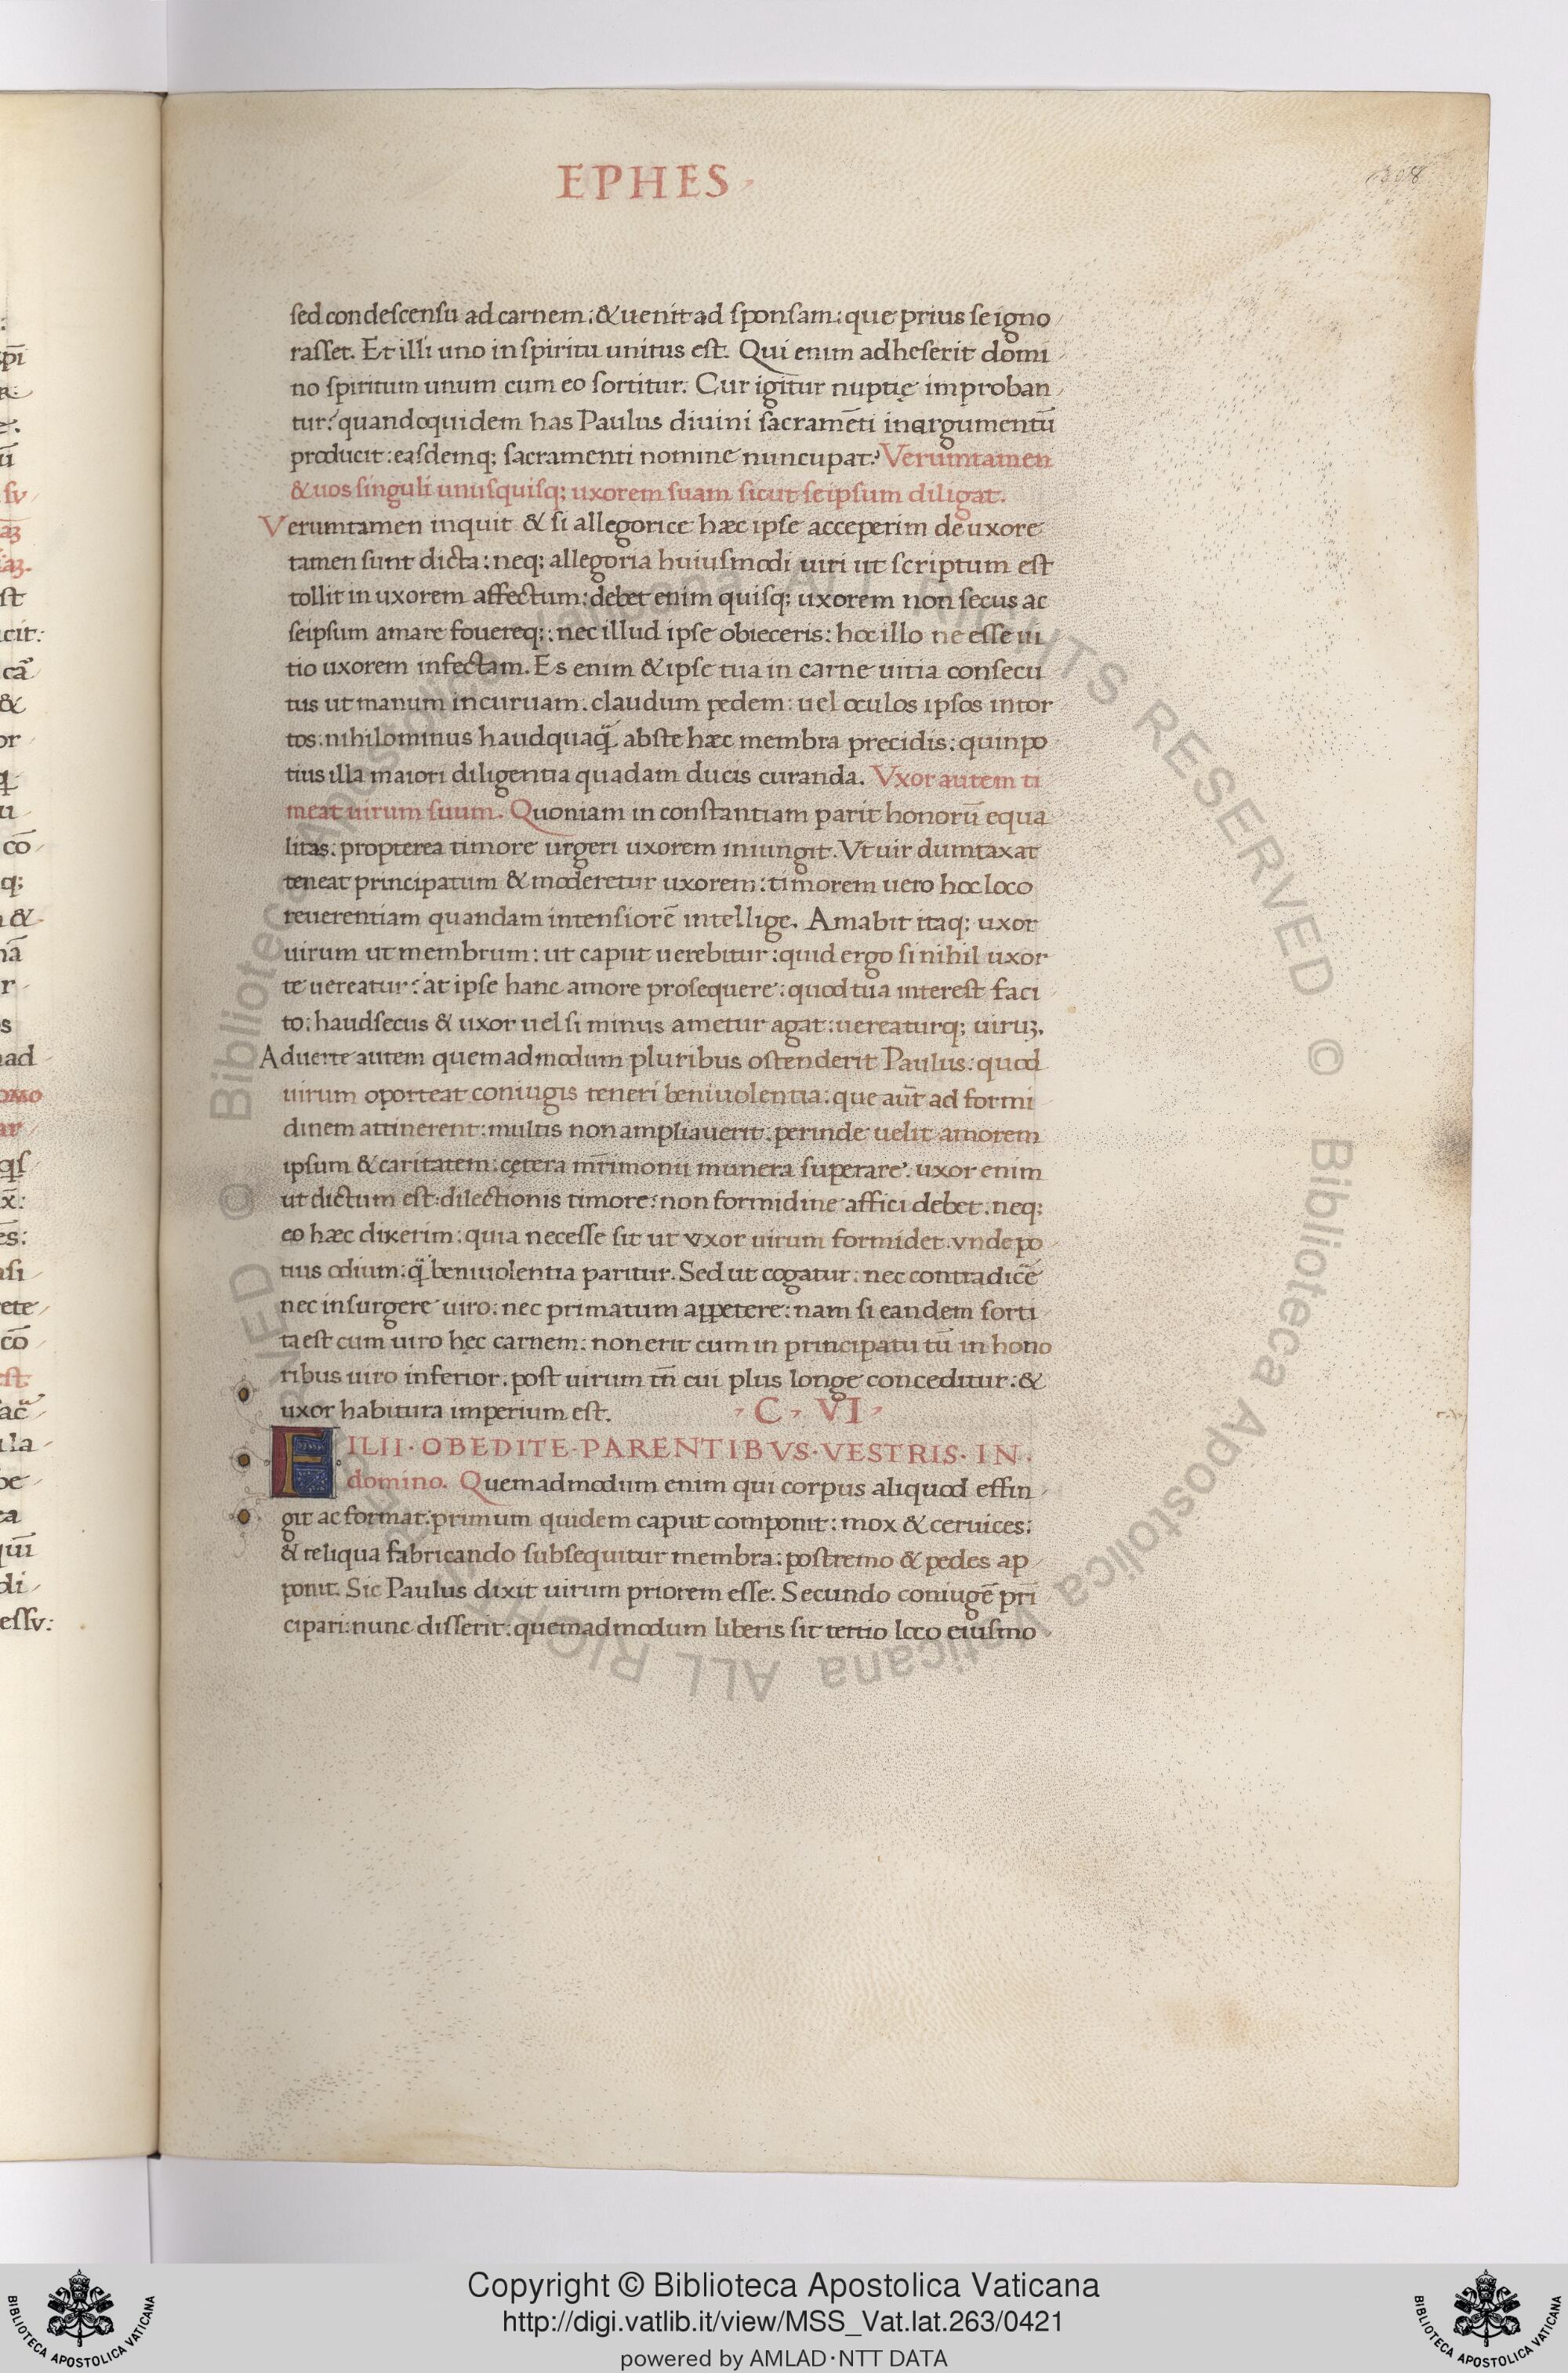 EPHES
208
sed condescensu ad carnem: & uenit ad sponsam: que prius se igno
rasset. Et illi uno in spiritu unitus est. Qui enim adheserit domi
no spiritum unum cum eo sortitur. Cur igitur nuptię improban
tur? quandoquidem has Paulus diuini sacramēti in argumentū
producit: easdemq; sacramenti nomine nuncupat? Verumtamen
& uos singuli unusquisq; uxorem suam sicut seipsum diligat.
Verumtamen inquit & si allegorice hæc ipse acceperim de uxore
tamen sunt dicta: neq; allegoria huiusmodi uiri ut scriptum est
tollit in uxorem affectum: debet enim quisq; uxorem non secus ac
seipsum amare fouereq;: nec illud ipse obieceris: hoc illo ne esse ui
tio uxorem infectam. Es enim & ipse tua in carne uitia consecu
tus ut manum incuruam. claudum pedem: uel oculos ipsos intor
tos: nihilominus haudquaq̃ abste hæc membra precidis: quinpo
tius illa maiori diligentia quadam ducis curanda. Vxor autem ti
meat uirum suum. Quoniam in constantiam parit honorū equa
litas: propterea timore urgeri uxorem iniungit. Vt uir dumtaxat
teneat principatum & moderetur uxorem: timorem uero hoc loco
reuerentiam quandam intensiorē intellige. Amabit itaq; uxor
uirum ut membrum: ut caput uerebitur: quid ergo si nihil uxor
te uereatur? at ipse hanc amore prosequere: quod tua interest faci
to: haudsecus & uxor uel si minus ametur agat: uereaturq; uiruꝫ.
Aduerte autem quemadmodum pluribus ostenderit Paulus: quod
uirum oporteat coniugis teneri beniuolentia: que aūt ad formi
dinem attinerent: multis non ampliauerit: perinde uelit amorem
ipsum & caritatem: cętera mr̄imonii munera superare: uxor enim
ut dictum est: dilectionis timore: non formidine affici debet. neq;
eo hæc dixerim: quia necesse sit ut vxor uirum formidet. vnde po
tius odium: q̃ beniuolentia paritur. Sed ut cogatur: nec contradicē
nec insurgere uiro: nec primatum appetere: nam si eandem sorti
ta est cum uiro hęc carnem: non erit cum in principatu tū in hono
ribus uiro inferior. post uirum tn̄ cui plus longe conceditur: &
uxor habitura imperium est. C VI
FILII · OBEDITE · PARENTIBVS · VESTRIS · IN ·
domino. Quemadmodum enim qui corpus aliquod effin
git ac format: primum quidem caput componit: mox & ceruices:
& reliqua fabricando subsequitur membra: postremo & pedes ap
ponit. Sic Paulus dixit uirum priorem esse. Secundo coniugē pri
cipari: nunc disserit: quemadmodum liberis sit tertio loco eiusmo
Copyright © Biblioteca Apostolica Vaticana
http://digi.vatlib.it/view/MSS_Vat.lat.263/0421
powered by AMLAD·NTT DATA